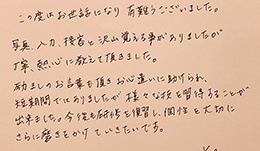 この度はお世話になり 有難うございました。
写真、入力、接客と沢山覚える事がありましたが
丁寧、熱心に教えて頂きました。
励ましのお言葉も頂き お心遣いに助けられ、
短期間ではありましたが 様々な技を習得することが
出来ました。今後も研修を復習し、個性を大切に
さらに磨きをかけていきたいです。